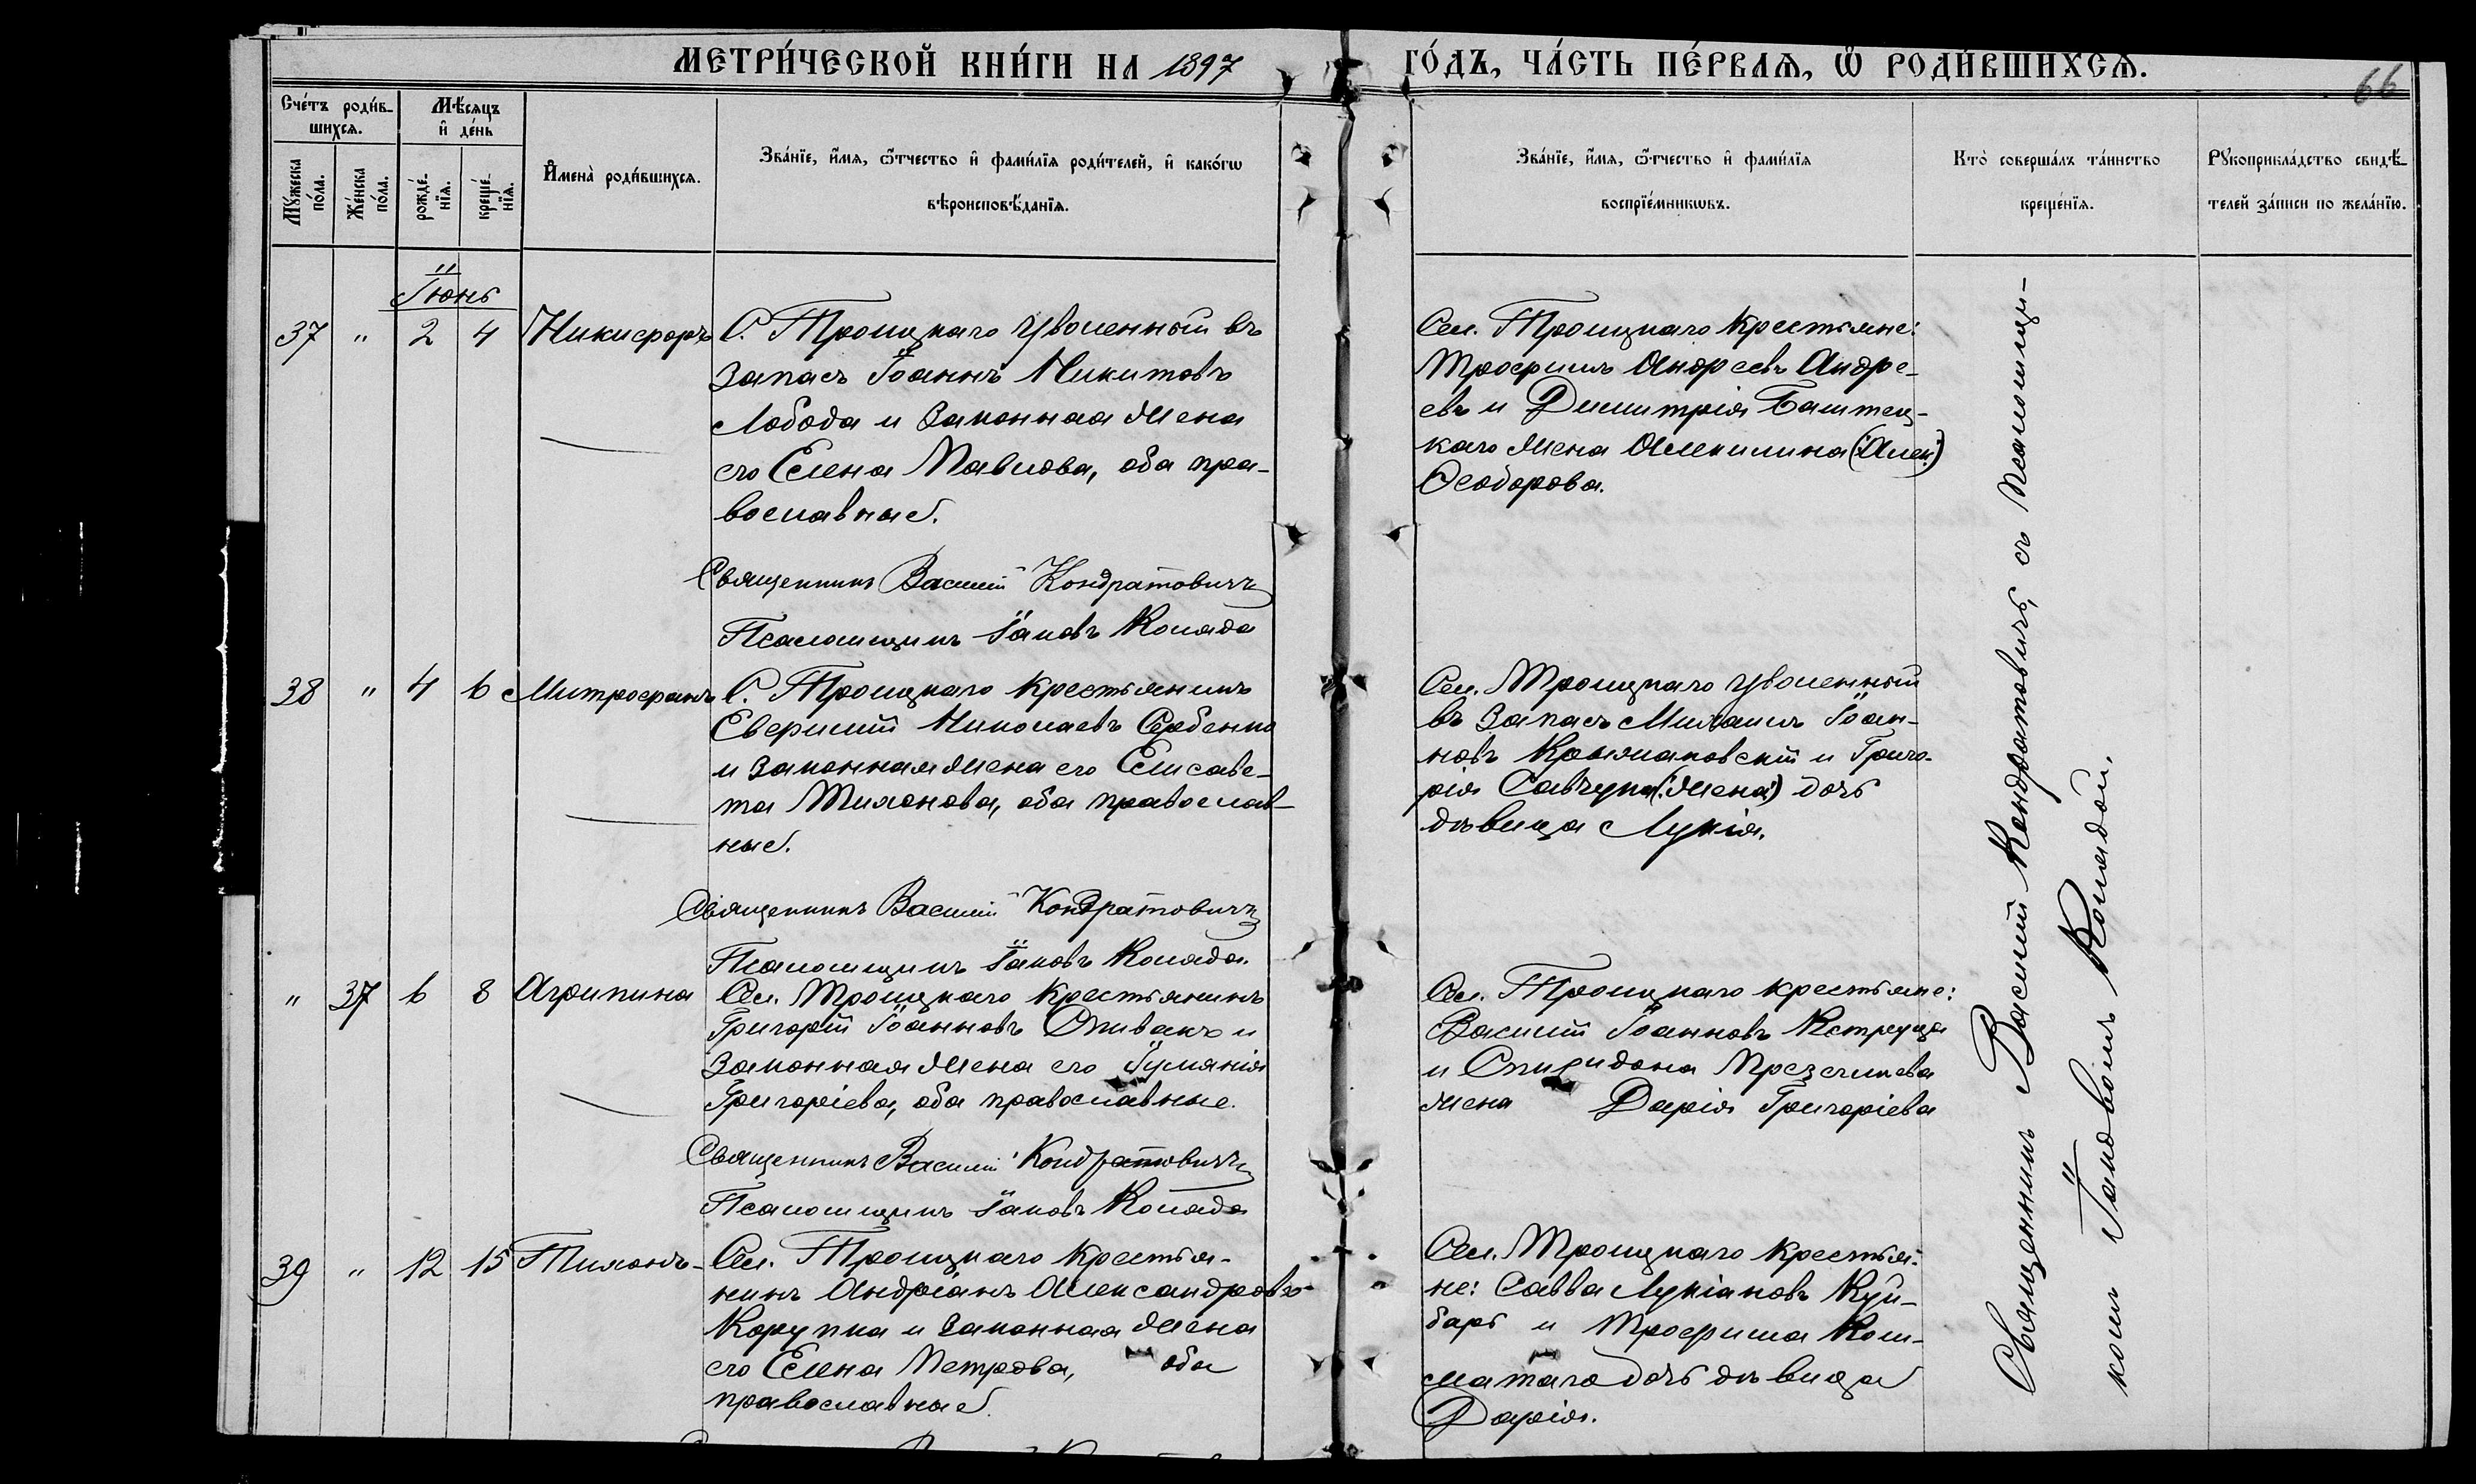 МЕТРИ́ЧЕСКОЙ КНИ́ГИ НА 1897 ГО́ДЪ, ЧА́СТЬ ПЕ́РВАѦ, Ѡ҆ РОДИ́ВШИХСѦ.
66
Сче́тъ роди́в-
шихсѧ.
Мѣ́сяцъ
и҆ де́нь
Мꙋ́жеска по́ла.
Же́нска по́ла.
рожде́-
нїѧ.
креще́-
нїѧ.
И҆мена̀ роди́вшихсѧ.
Зва́нїе, и҆́мѧ, ѻ҆́тчество и҆ фами́лїѧ роди́телей, и҆ како́гѡ
вѣроисповѣ́данїѧ.
Зва́нїе, и҆́мѧ, ѻ҆́тчество и҆ фами́лїѧ
воспрїе́мникѡвъ.
Кто̀ соверша́лъ та́инство
креще́нїѧ.
Рꙋкоприкла́дство свидѣ́-
телей за́писи по жела́нїю.
Іюнь
37 " 2 4 Никифоръ
С. Троицкаго уволенный въ
запасъ Іоаннъ Никитовъ
Лобода и законная жена
его Елена Павлова, оба пра-
вославные.
Священникъ Василій Кондратовичъ
Псаломщикъ Іаковъ Коляда
Сел. Троицкаго крестьяне:
Трофимъ Андреевъ Андре-
евъ и Димитрія Баштец-
каго жена Акилина
Ѳеодорова.
38 " 4 6 Митрофанъ
С. Троицкаго крестьянинъ
Евфимій Николаевъ Сербенко
и законная жена его Елисаве-
та Тихонова, оба православ-
ные.
Священникъ Василій Кондратовичъ
Псаломщикъ Іаковъ Коляда.
Сел. Троицкаго уволенный
въ запасъ Михаилъ Іоан-
новъ Крыжановскій и Григо-
рія Савчука (:жена:) дочь
дѣвица Лукія.
" 37 6 8 Агрипина
Сел. Троицкаго крестьянинъ
Григорій Іоанновъ Спивакъ и
законная жена его Іуліанія
Григоріева, оба православные.
Священникъ Василій Кондратовичъ
Псаломщикъ Іаковъ Коляда
Сел. Троицкаго крестьяне:
Василій Іоанновъ
и Спиридона
жена Дарія Григоріева
39 " 12 15 Тихонъ
Сел. Троицкаго крестья-
нинъ Андріанъ Александровъ
Корупка и законная жена
его Елена Петрова, оба
православные.
Сел. Троицкаго крестья-
не: Савва Лукіановъ Куй-
барь и Трофима Кош-
матаго дочь дѣвица
Дарія.
Священникъ Василій Кондратовичъ, съ псаломщи-
комъ Іаковомъ Колядой.